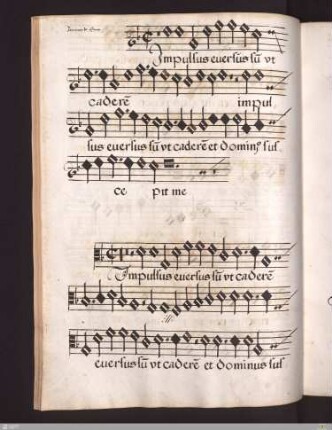 Impulsus euersus sū vt
caderē impul
sus euersus sū vt caderē et dominꝰ sus
ce pit me
Impulsus euersus sū vt caderē
euersus sū vt caderē et dominus sus